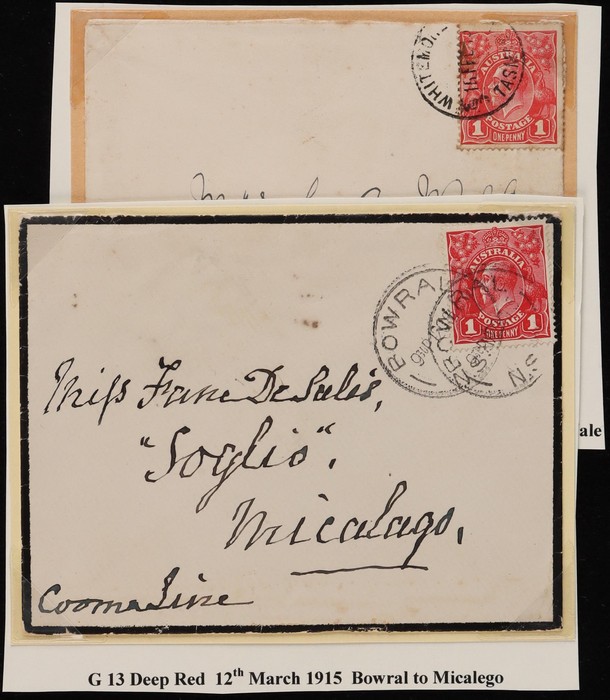 WHITEMORE
TASM
AUSTRALIA
POSTAGE
1 1
ONE PENNY
ale
BOWRAL
BOWRAL
N.S
AUSTRALIA
POSTAGE
1 1
ONE PENNY
Miss Fane De Salis,
"Soglio".
Micalago,
Cooma Line
G 13 Deep Red 12th March 1915 Bowral to Micalego